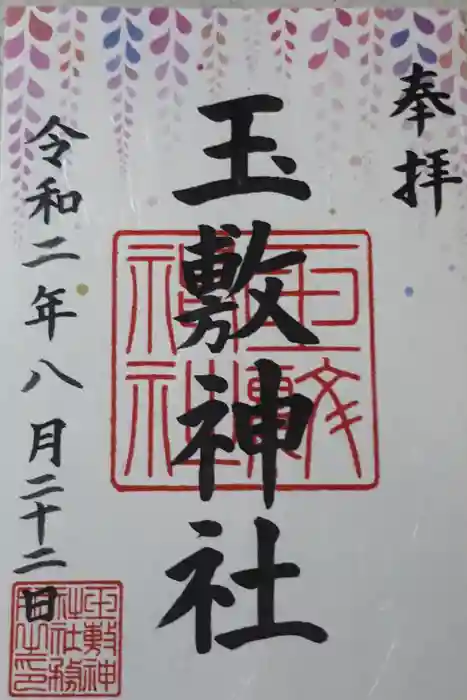 奉拝
玉敷神社
令和二年八月二十二日
玉敷神社
玉敷神社社務所之印